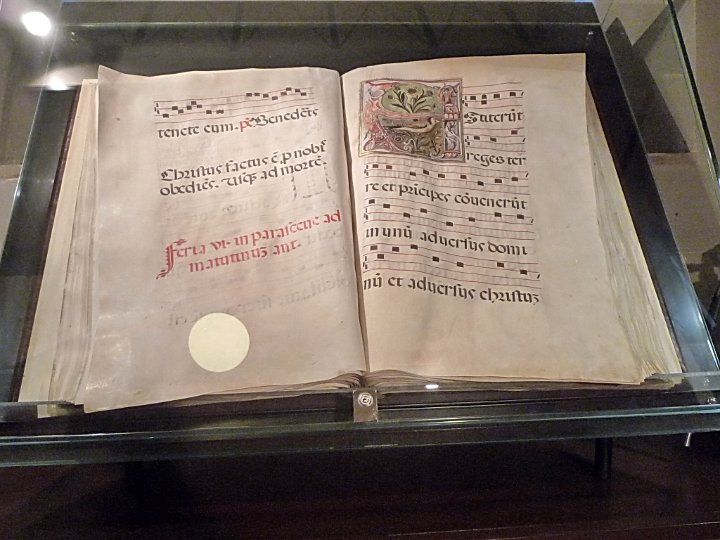 tenete eum. ps Benedēts
Christus factus ē p nobis
obediēs. Usq ad mortē.
Feria vi. in parasceue ad
matutinuz ant.
Stiterūt
reges ter
re et prīcipes cōuenerūt
in unū aduersus domi
nū et aduersus christuz